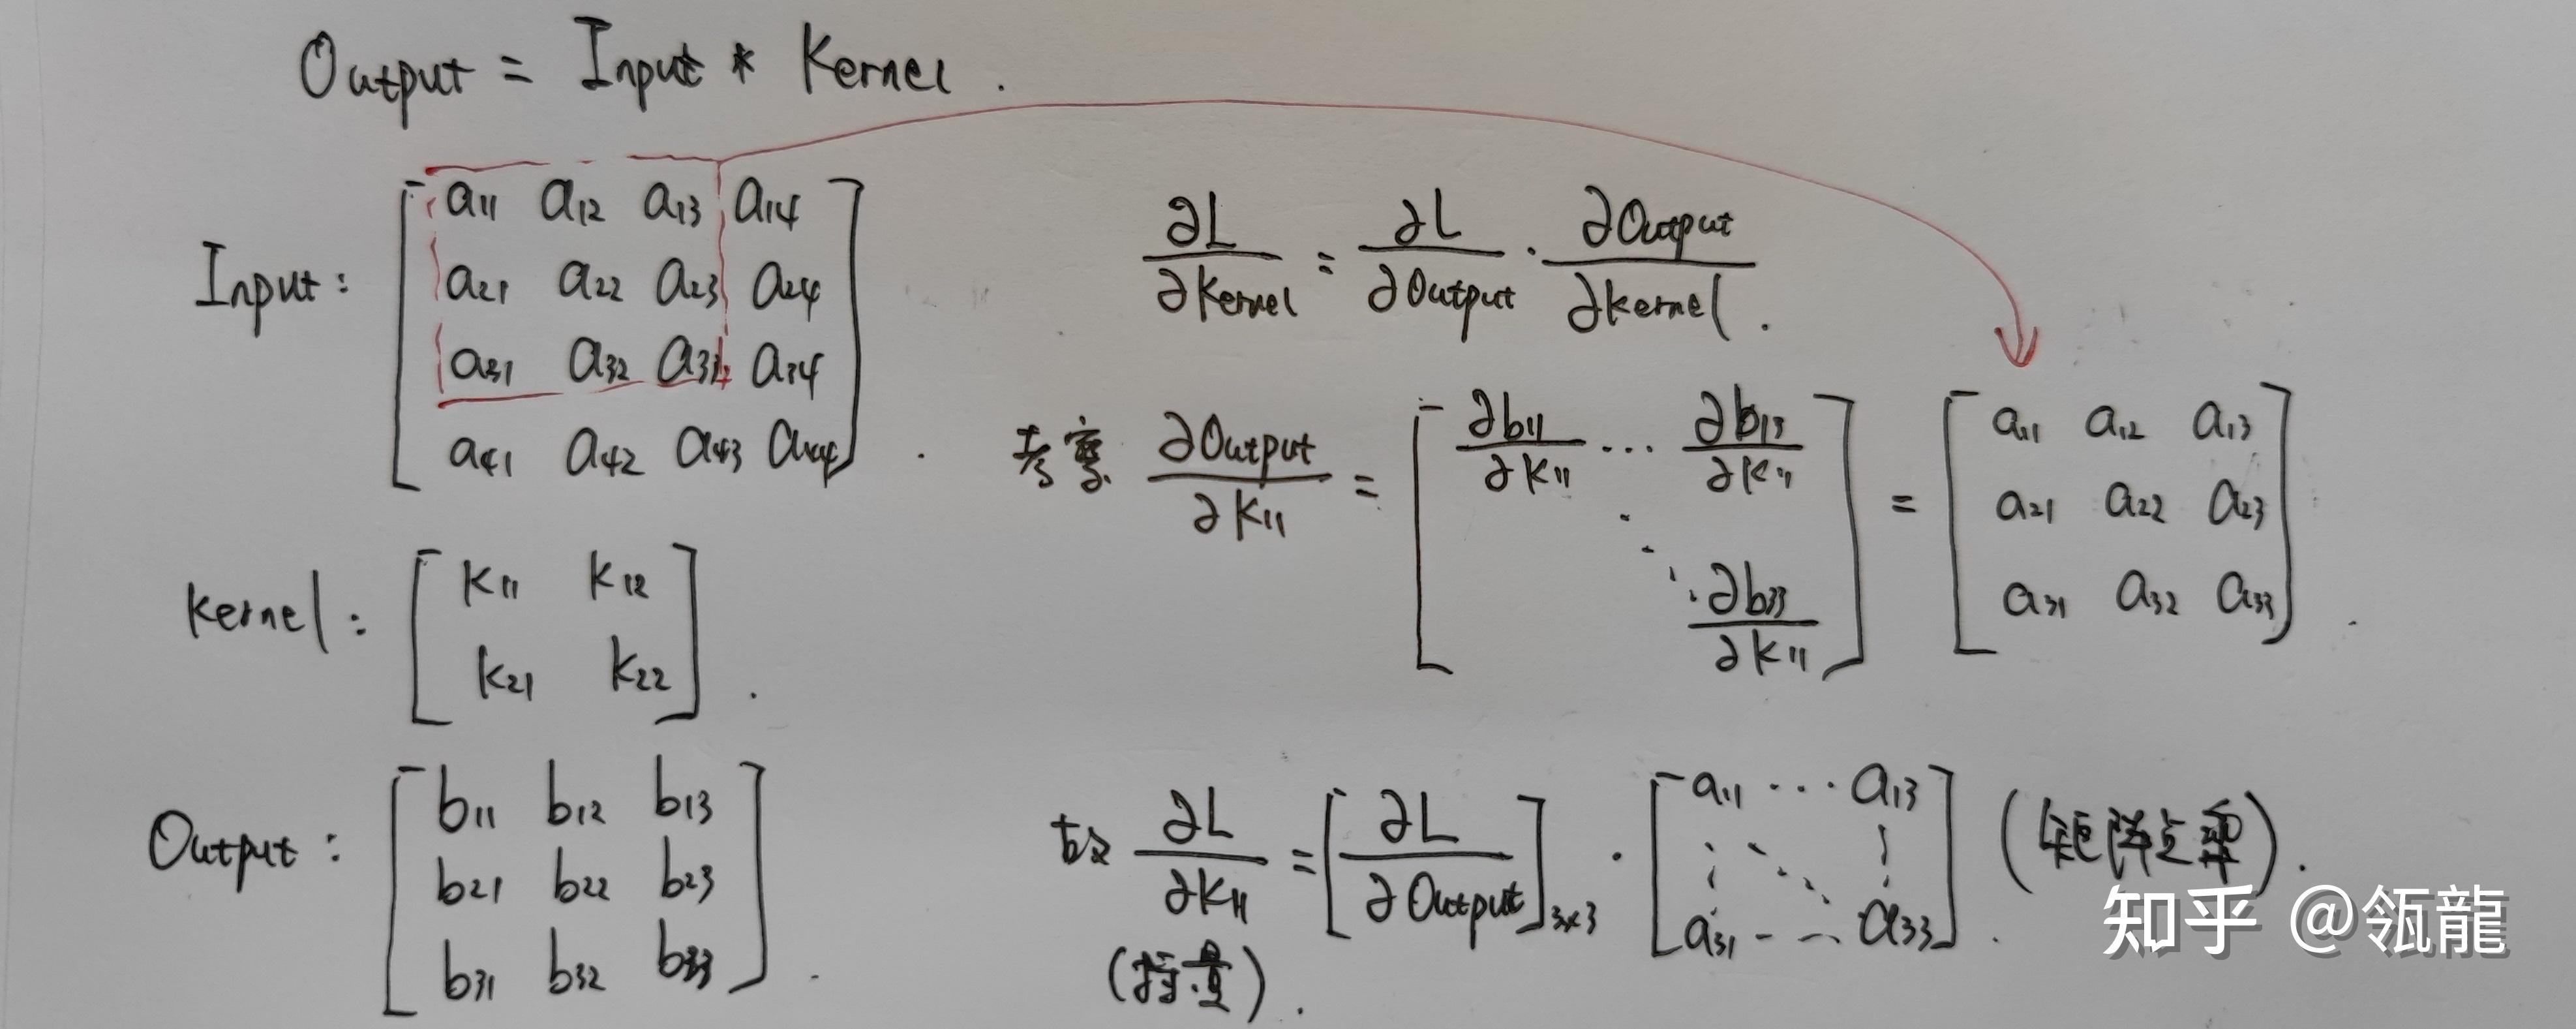 Output = Input * Kernel .
Input :
a11 a12 a13 a14
a21 a22 a23 a24
a31 a32 a33 a34
a41 a42 a43 a44 .
kernel :
k11 k12
k21 k22 .
Output :
b11 b12 b13
b21 b22 b23
b31 b32 b33 .
∂L/∂kernel = ∂L/∂Output · ∂Output/∂kernel .
考察 ∂Output/∂k11 = [ ∂b11/∂k11 ... ∂b13/∂k11
∂b33/∂k11 ] =
a11 a12 a13
a21 a22 a23
a31 a32 a33 .
故 ∂L/∂k11 = [ ∂L/∂Output ]3×3 · [ a11 ... a13
a31 - - a33 ] (矩阵点乘) .
(标量) .
知乎 @瓴龍